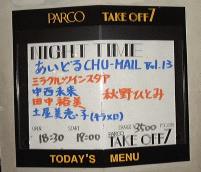 PARCO TAKE OFF7
NIGHT TIME
あいどるCHU-MAIL Vol.13
ミラクルツインスタア
中西未来
田中裕美 秋野ひとみ
土屋美恵子(キャロ)
OPEN START CHARGE 3500
18:30 19:00 PARCO TAKE OFF7
TODAY'S MENU